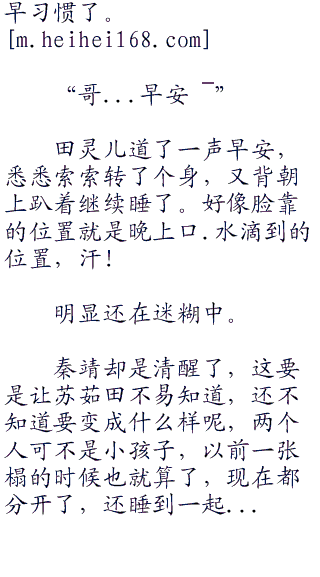 早习惯了。
[m.heihei168.com]
“哥...早安 ˉ”
田灵儿道了一声早安，
悉悉索索转了个身，又背朝
上趴着继续睡了。好像脸靠
的位置就是晚上口.水滴到的
位置，汗！
明显还在迷糊中。
秦靖却是清醒了，这要
是让苏茹田不易知道，还不
知道要变成什么样呢，两个
人可不是小孩子，以前一张
榻的时候也就算了，现在都
分开了，还睡到一起...